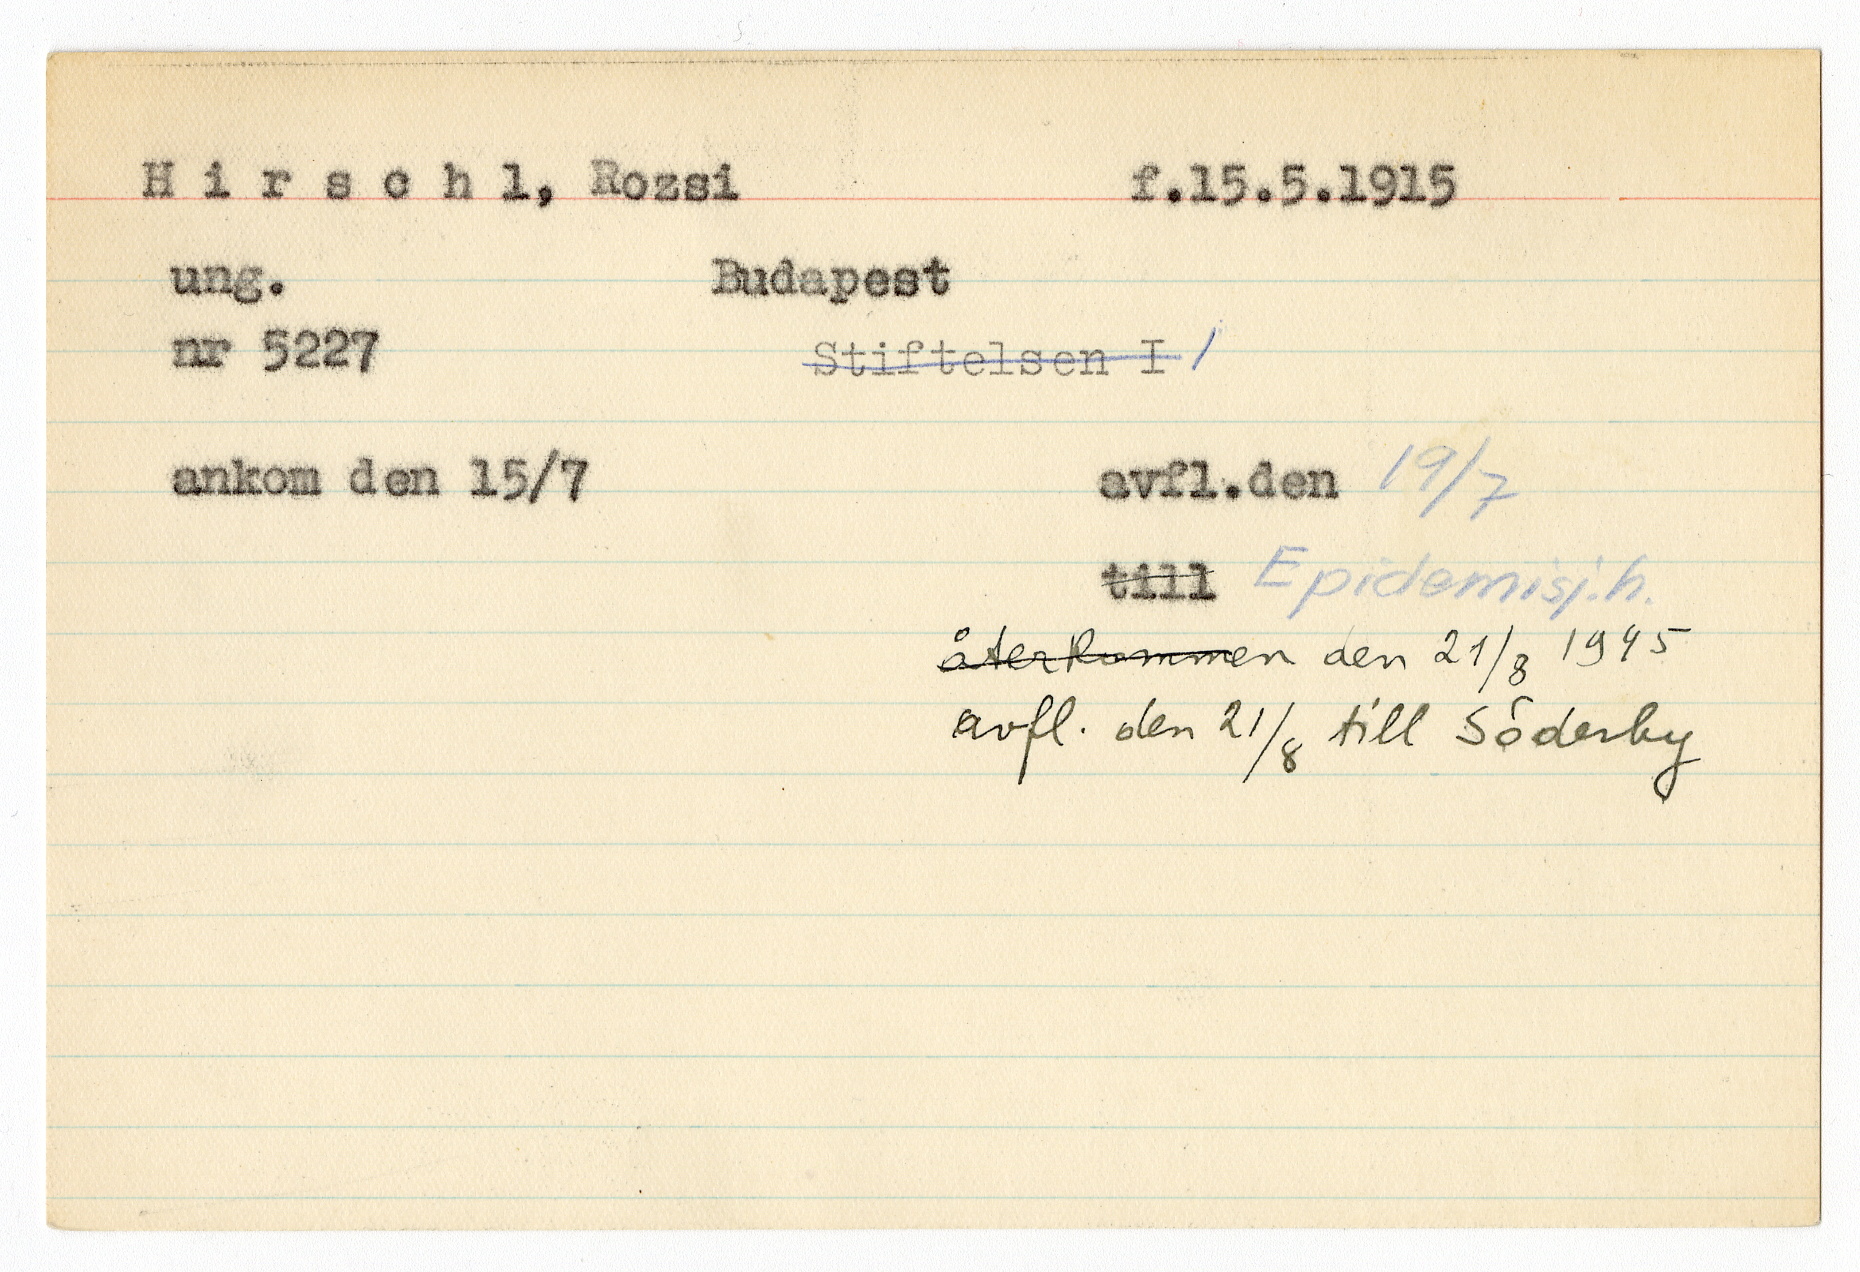 H i r s c h l, Rozsi f.15.5.1915
ung. Budapest
nr 5227 Stiftelsen I /
ankom den 15/7 avfl.den 19/7
till Epidemisj.h.
återkommen den 21/8 1945
avfl. den 21/8 till Söderby